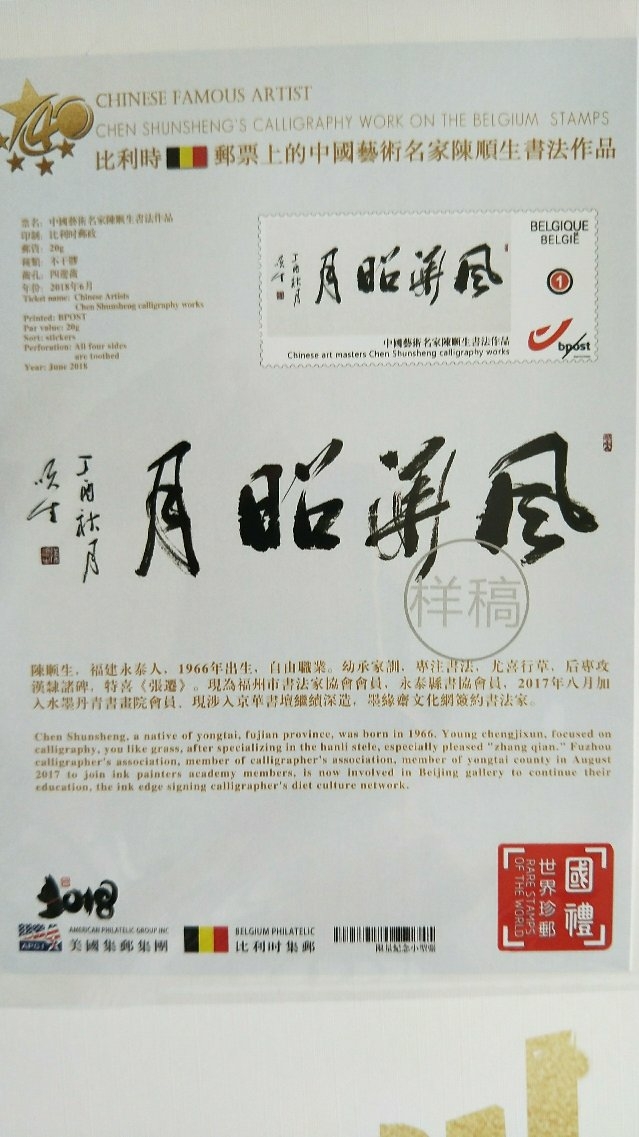 40
CHINESE FAMOUS ARTIST
CHEN SHUNSHENG'S CALLIGRAPHY WORK ON THE BELGIUM STAMPS
比利時郵票上的中國藝術名家陳順生書法作品
票名：中國藝術名家陳順生書法作品
印制：比利时郵政
郵資：20g
種類：不干膠
齒孔：四邊齒
年份：2018年6月
Ticket name: Chinese Artists
Chen Shunsheng calligraphy works
Printed: BPOST
Par value: 20g
Sort: stickers
Perforation: All four sides
are toothed
Year: June 2018
BELGIQUE
BELGIË
1
bpost
風華昭月
丁酉秋月
順生
中國藝術名家陳順生書法作品
Chinese art masters Chen Shunsheng calligraphy works
風華昭月
丁酉秋月
順生
样稿
陳順生，福建永泰人，1966年出生，自由職業。幼承家訓，專注書法，尤喜行草，后專攻
漢隸諸碑，特喜《張遷》。現為福州市書法家協會會員，永泰縣書協會員，2017年八月加
入水墨丹青書畫院會員，現涉入京華書壇繼續深造，墨緣齋文化網簽約書法家。
Chen Shunsheng, a native of yongtai, fujian province, was born in 1966. Young chengjixun, focused on
calligraphy, you like grass, after specializing in the hanli stele, especially pleased "zhang qian." Fuzhou
calligrapher's association, member of calligrapher's association, member of yongtai county in August
2017 to join ink painters academy members, is now involved in Beijing gallery to continue their
education, the ink edge signing calligrapher's diet culture network.
2018
APGI
AMERICAN PHILATELIC GROUP INC
美國集郵集團
BELGIUM PHILATELIC
比利时集郵
限量紀念小型張
國禮
世界珍郵
RARE STAMPS
OF THE WORLD